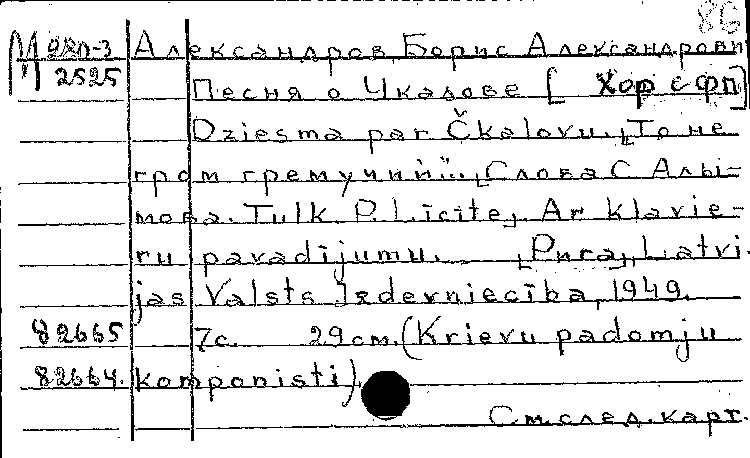 86
М 980-3 Александров, Борис Александрович
2525 Песня о Чкалове [Хор с фп]
Dziesma par Čkalovu. „То не
гром гремучий". Слова С. Алы-
мова. Tulk. P. Līcīte, Ar klavie-
ru pavadījumu. [Рига], Latvi-
jas Valsts Izdevniecība, 1949.
82665 7с. 29см. (Krievu padomju
82664. komponisti)
См. след. карт.